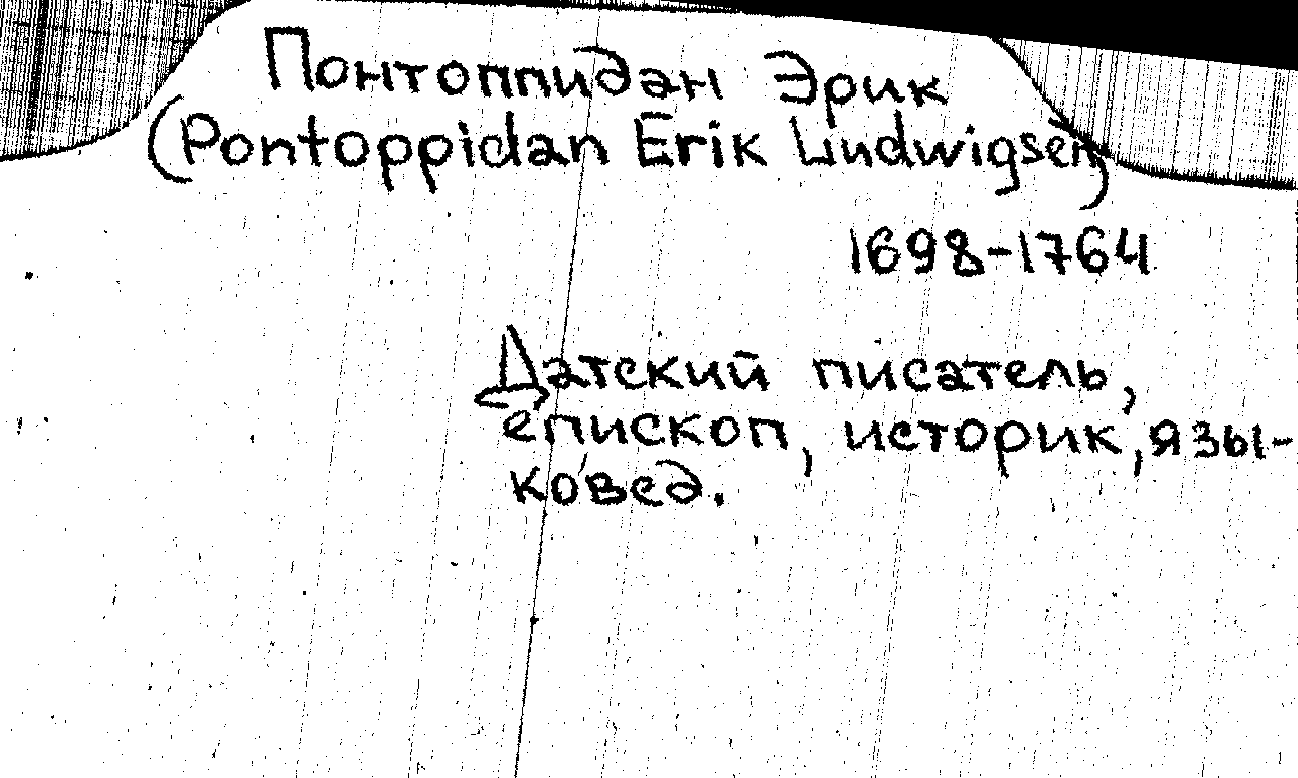 Понтоппидан Эрик
(Pontoppidan Erik Ludwigsen)
1698-1764
Датский писатель,
епископ, историк, язы-
ковед.